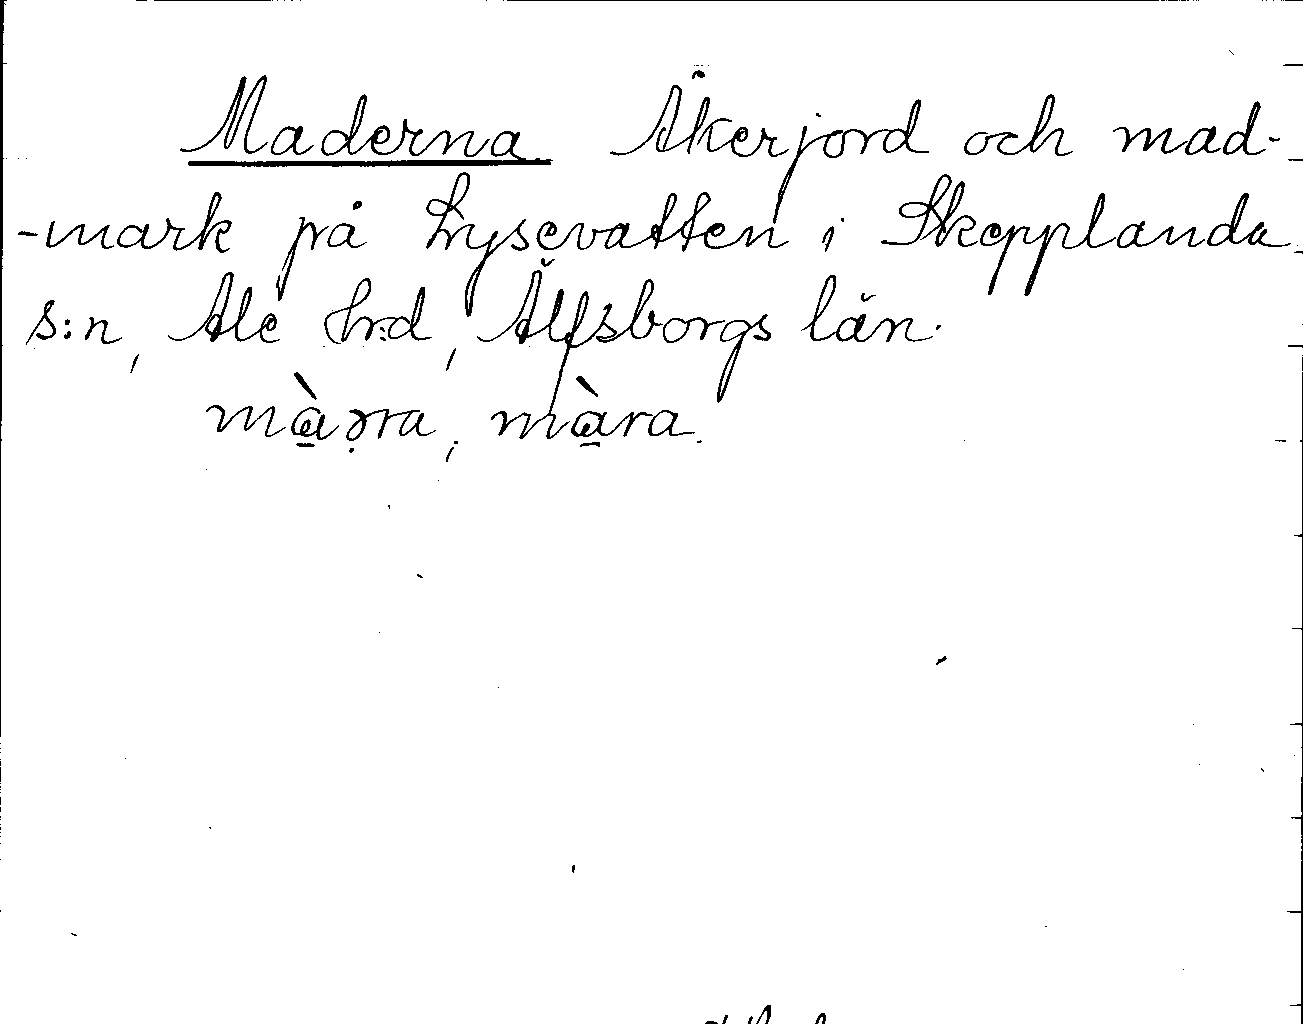 Maderna. Åkerjord och mad-
-mark på Lysevatten i Skepplanda
s:n, Ale hrd, Älfsborgs län.
mà̱ṛra; mà̱ra.